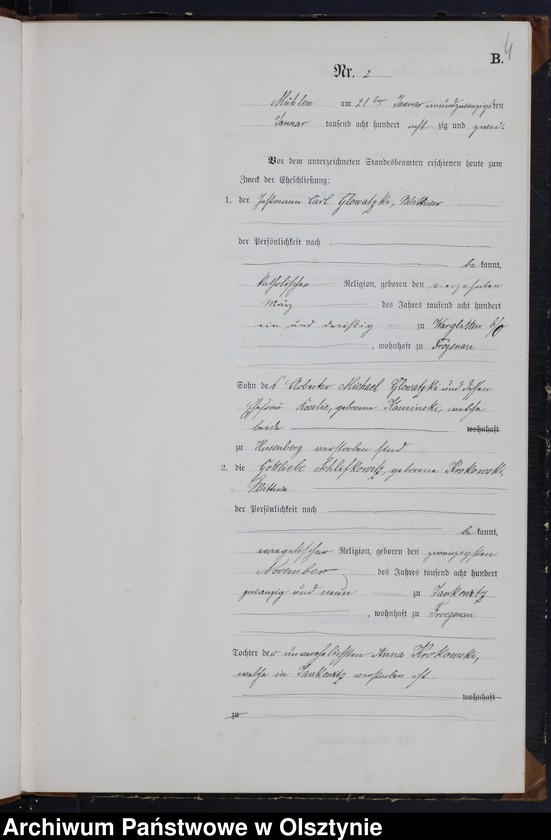 4
B.
Nr. 2
Mühlen am 21ten Januar einundzwanzigsten
Januar tausend acht hundert acht zig und zwei.
Vor dem unterzeichneten Standesbeamten erschienen heute zum
Zweck der Eheschließung:
1. der Instmann Carl Glowatzki, Wittwer
der Persönlichkeit nach
be kannt,
katholischer Religion, geboren den vierzehnten
März des Jahres tausend acht hundert
ein und dreißig zu Warglitten
, wohnhaft zu Frögenau
Sohn des Arbeiter Michael Glowatzki und dessen
Ehefrau Roselie, geborene Kaminski, welche
beide wohnhaft
zu verstorben sind.
2. die Gottliebe Schlifkowitz, geborene Krokowski,
Wittwe
der Persönlichkeit nach
be kannt,
evangelischer Religion, geboren den zwanzigsten
November des Jahres tausend acht hundert
zwanzig und neun zu Jankowitz
, wohnhaft zu Froegenau
Tochter der unverehelichten Anna Krokowski,
welche in Jankowitz verstorben ist.
wohnhaft
zu
Archiwum Państwowe w Olsztynie